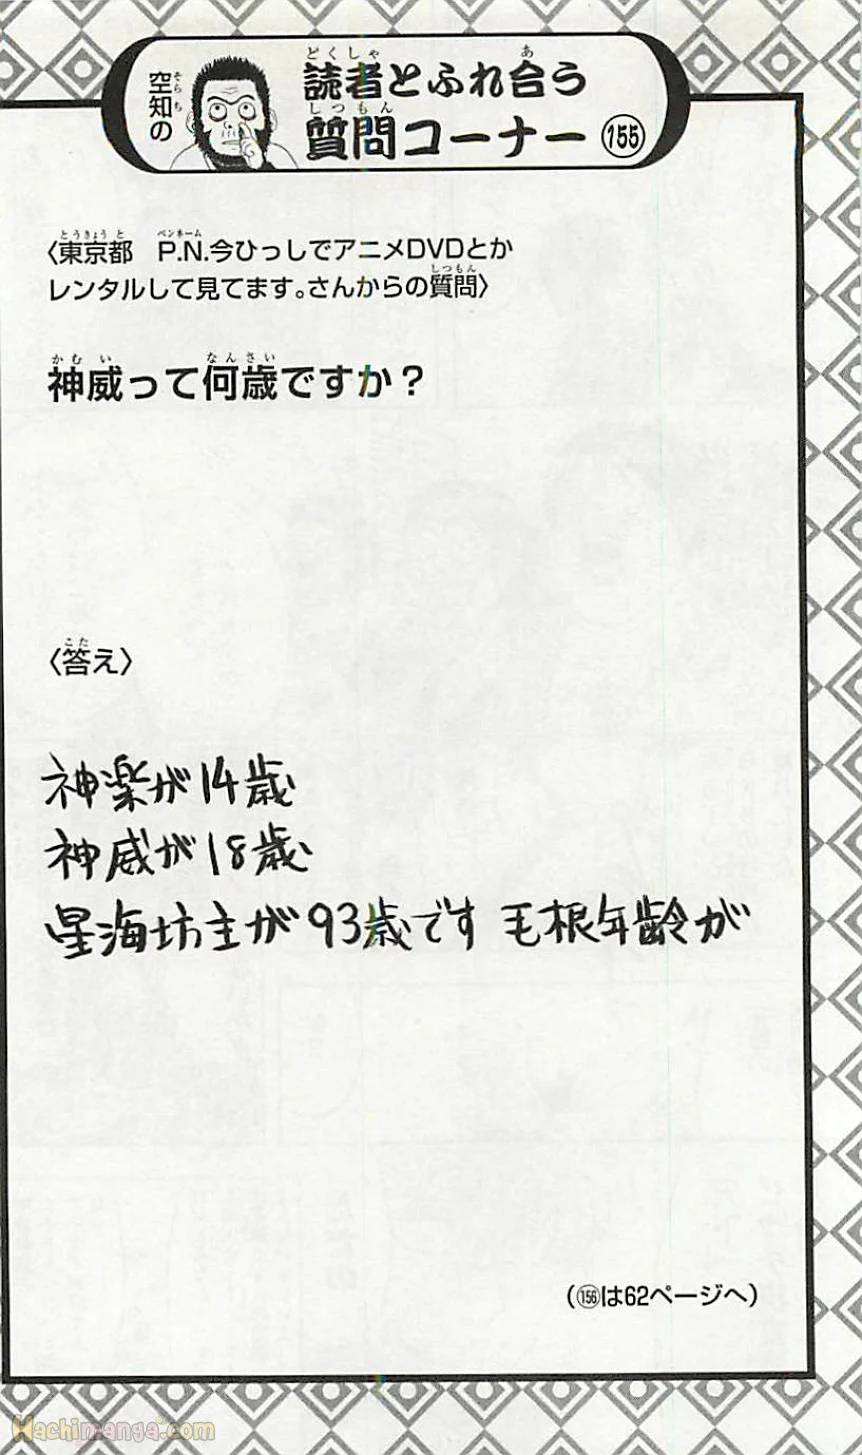 空知の
読者とふれ合う
質問コーナー155
〈東京都　P.N.今ひっしでアニメDVDとか
レンタルして見てます。さんからの質問〉
神威って何歳ですか？
〈答え〉
神楽が14歳
神威が18歳
星海坊主が93歳です 毛根年齢が
(156は62ページへ)
Hachimanga.com